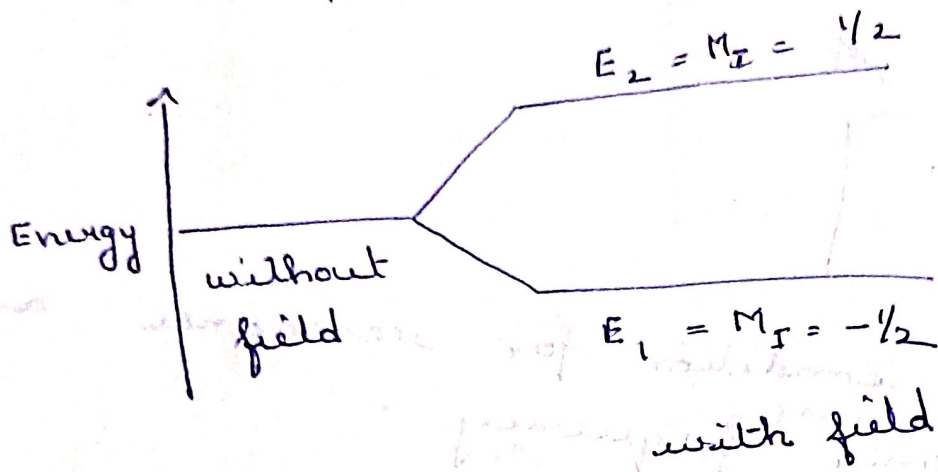 E₂ = M_I = 1/2
Energy
without
field
E₁ = M_I = -1/2
with field